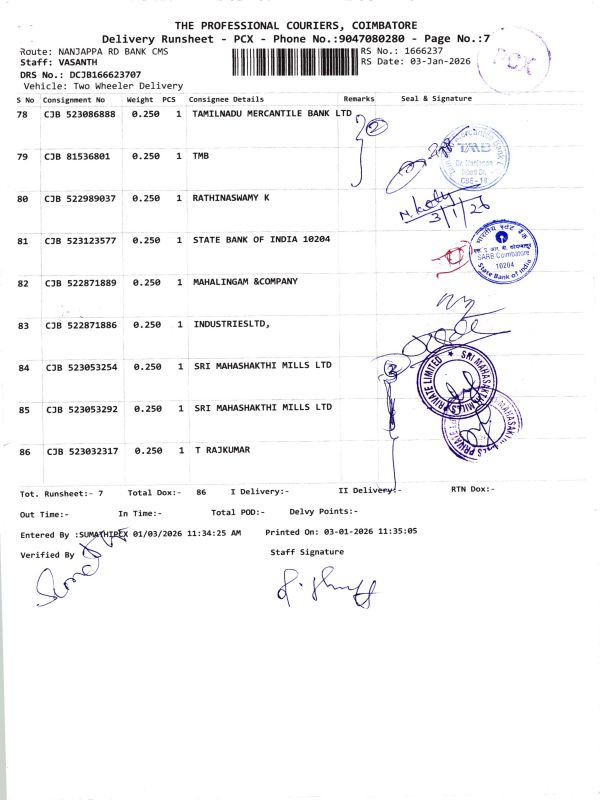 THE PROFESSIONAL COURIERS, COIMBATORE
Delivery Runsheet - PCX - Phone No.:9047080280 - Page No.:7
Route: NANJAPPA RD BANK CMS
RS No.: 1666237
Staff: VASANTH
RS Date: 03-Jan-2026
PCX
DRS No.: DCJB166623707
Vehicle: Two Wheeler Delivery
S No Consignment No Weight PCS Consignee Details Remarks Seal & Signature
78 CJB 523086888 0.250 1 TAMILNADU MERCANTILE BANK LTD
2
79 CJB 81536801 0.250 1 TMB
TMB
80 CJB 522989037 0.250 1 RATHINASWAMY K
3/1/26
81 CJB 523123577 0.250 1 STATE BANK OF INDIA 10204
भारतीय स्टेट बैंक
SARB Coimbatore
10204
State Bank of India
82 CJB 522871889 0.250 1 MAHALINGAM &COMPANY
83 CJB 522871886 0.250 1 INDUSTRIESLTD,
84 CJB 523053254 0.250 1 SRI MAHASHAKTHI MILLS LTD
2
SRI MAHASAKTHI MILLS PRIVATE LIMITED
85 CJB 523053292 0.250 1 SRI MAHASHAKTHI MILLS LTD
86 CJB 523032317 0.250 1 T RAJKUMAR
Tot. Runsheet:- 7 Total Dox:- 86 I Delivery:- II Delivery:- RTN Dox:-
Out Time:- In Time:- Total POD:- Delvy Points:-
Entered By :SUMATHIPEX 01/03/2026 11:34:25 AM Printed On: 03-01-2026 11:35:05
Verified By Staff Signature